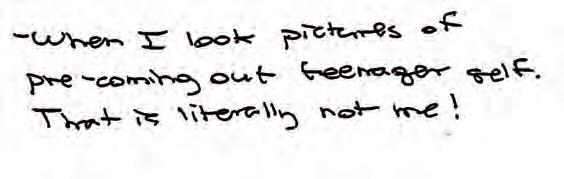 -When I look pictures of
pre-coming out teenager self.
That is literally not me!